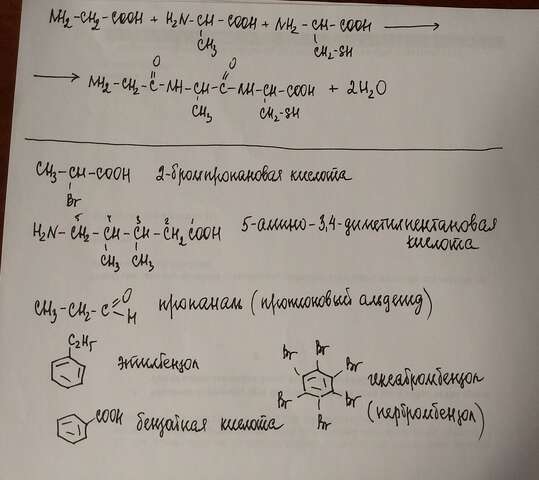 NH₂–CH₂–COOH + H₂N–CH–COOH + NH₂–CH–COOH ⟶
CH₃ CH₂–SH
O O
⟶ NH₂–CH₂–C–NH–CH–C–NH–CH–COOH + 2H₂O
CH₃ CH₂–SH
CH₃–CH–COOH 2-бромпропановая кислота
Br
5 4 3 2 1
H₂N–CH₂–CH–CH–CH₂COOH 5-амино-3,4-диметилпентановая
CH₃ CH₃ кислота
O
CH₃–CH₂–C пропаналь (пропионовый альдегид)
H
C₂H₅ этилбензол
Br Br Br Br Br Br гексабромбензол
(пербромбензол)
COOH бензойная кислота